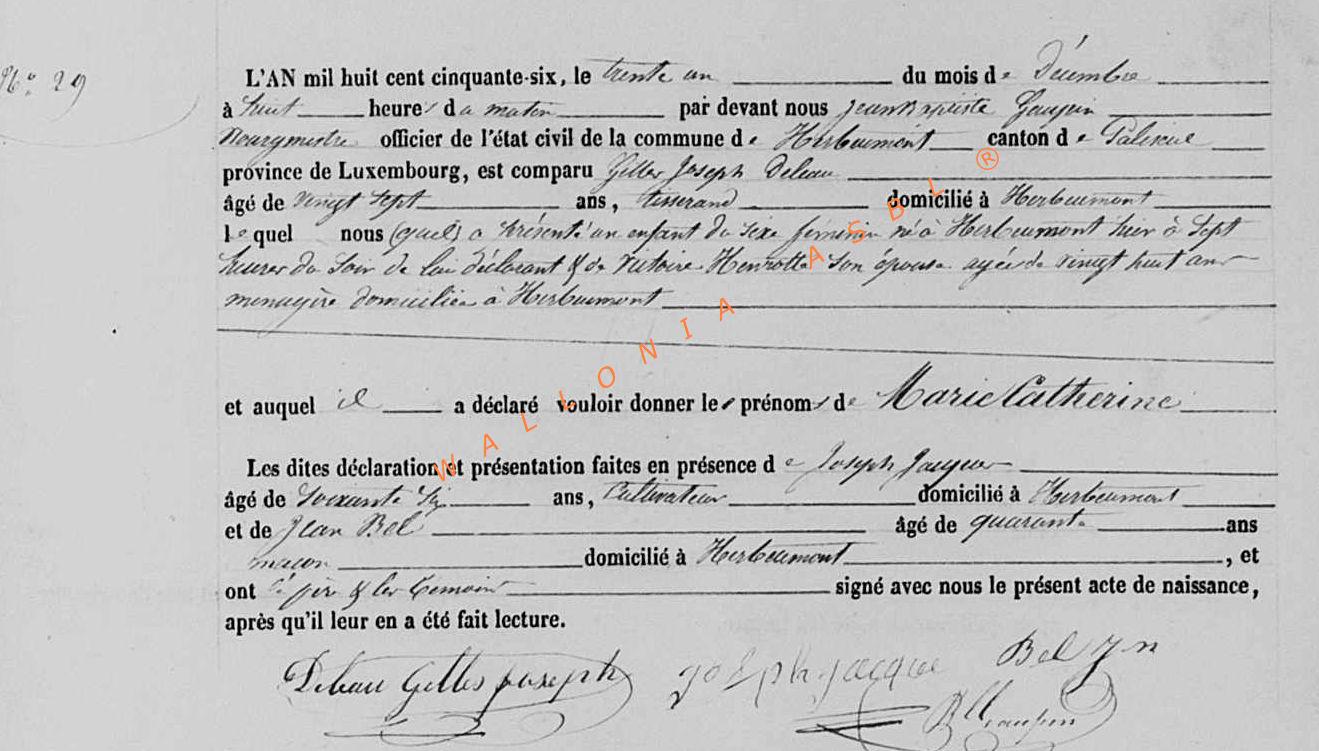 N° 29
L'AN mil huit cent cinquante-six, le trente un du mois de Décembre
à huit heures du matin par devant nous Jean Baptiste Gaupin
Bourgmestre officier de l'état civil de la commune de Herbeumont canton de Paliseul
province de Luxembourg, est comparu Gilles Joseph Deleau
âgé de vingt sept ans, tisserand domicilié à Herbeumont
lequel nous (quel) a présenté un enfant du sexe féminin né à Herbeumont hier à Sept
heures du Soir de lui déclarant & de Victoire Henrotte son épouse agée de vingt huit ans
menagère domiciliée à Herbeumont
et auquel il a déclaré vouloir donner les prénoms de Marie Catherine
Les dites déclaration et présentation faites en présence de Joseph Jacque
âgé de Soixante Six ans, Cultivateur domicilié à Herbeumont
et de Jean Bol âgé de quarante ans
macon domicilié à Herbeumont, et
ont le père & les témoins signé avec nous le présent acte de naissance,
après qu'il leur en a été fait lecture.
Deleau Gilles joseph joseph jacque Bol Jn
WALLONIA ASBL ®